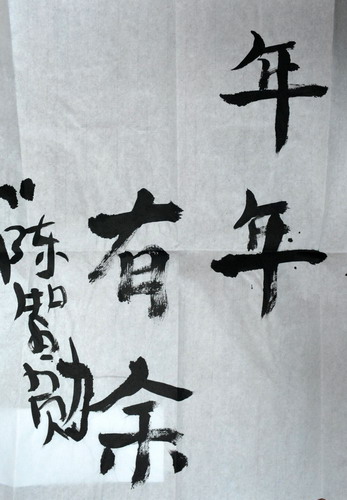 年年
有余
陈智勋